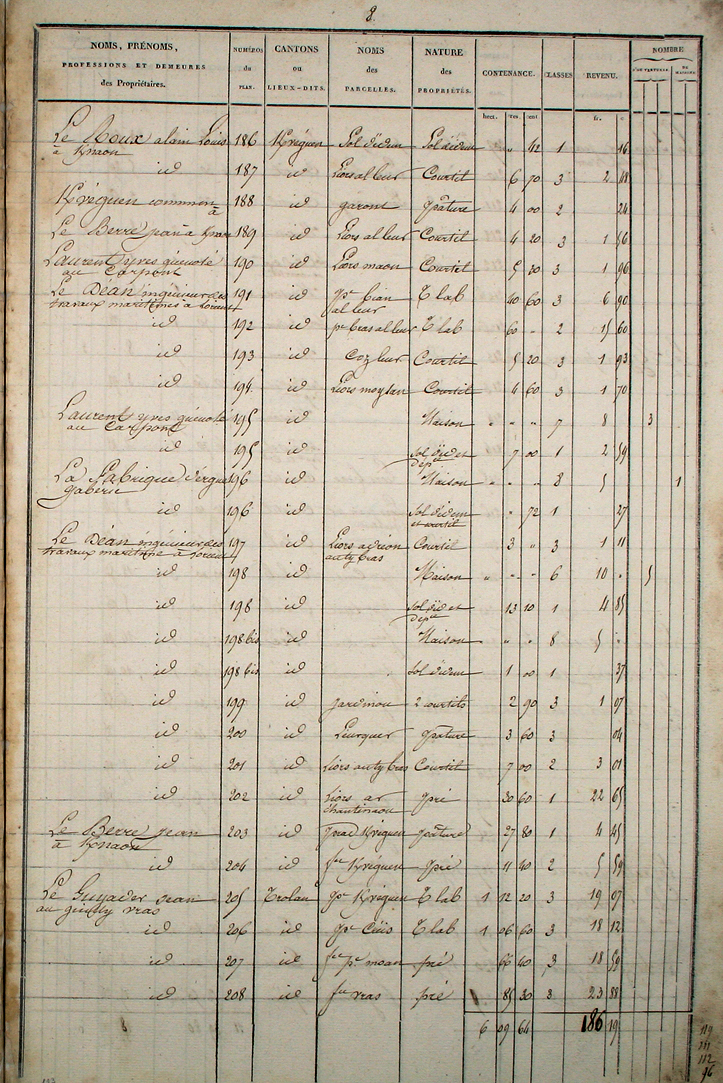 8.
NOMS, PRÉNOMS, PROFESSIONS ET DEMEURES des Propriétaires. NUMÉROS du PLAN. CANTONS ou LIEUX-DITS. NOMS des PARCELLES. NATURE des PROPRIÉTÉS. CONTENANCE. CLASSES REVENU. NOMBRE
hect. ares. cent. fr. c.
Le Roux alain Louis 186 Kréguen Sol d'idem Sol d'idem " 42 1 16
à Knaon
id 187 id Liors al leur Courtil 6 70 3 2 48
Kréguen commun à 188 id garont pâture 4 00 2 24
Le Berre jean à 189 id Liors al leur Courtil 4 20 3 1 56
Laurent yves quénoté 190 id Liors maon Courtil 5 30 3 1 96
au Carpont
Le Déan ingénieur des 191 id pc bian T lab 40 60 3 6 90
travaux maritimes à Lorient al leur
id 192 id pc bras al leur T lab 60 " 2 15 60
id 193 id Coz leur Courtil 5 20 3 1 93
id 194 id Liors moylan Courtil 4 60 3 1 70
Laurent yves quénoté 195 id Maison " " " 7 8 3
au Carpont
id 195 id Sol d'id et 7 00 1 2 59
dépce
La fabrique d'ergué 196 id Maison " " " 8 5 1
gaberic
id 196 id Sol d'idem " 72 1 27
et courtil
Le Déan ingénieur des 197 id Liors adrion Courtil 3 " 3 1 11
travaux maritime à Lorient anty bras
id 198 id Maison " " " 6 10 " 5
id 198 id Sol d'id et 13 10 1 4 85
dépce
id 198 bis id Maison " " 8 5 "
id 198 bis id Sol d'idem 1 00 1 37
id 199 id jardinou 2 courtils 2 90 3 1 07
id 200 id Leurquer pâture 3 60 3 04
id 201 id Liors anty bras Courtil 7 00 2 3 01
id 202 id Liors ar pré 30 60 1 22 65
Le Berre jean 203 id prad Kréguen pâture 27 80 1 4 45
à Knaon
id 204 id fc Kréguen pré 11 40 2 5 59
Le Guyader jean 205 Trolan pc Kréguen T lab 1 12 20 3 19 07
au vras
id 206 id pc T lab 1 06 60 3 18 12
id 207 id fc pc moan pré 66 40 3 18 59
id 208 id fc vras pré 85 30 3 23 88
6 09 64 186 19
119
111
112
96